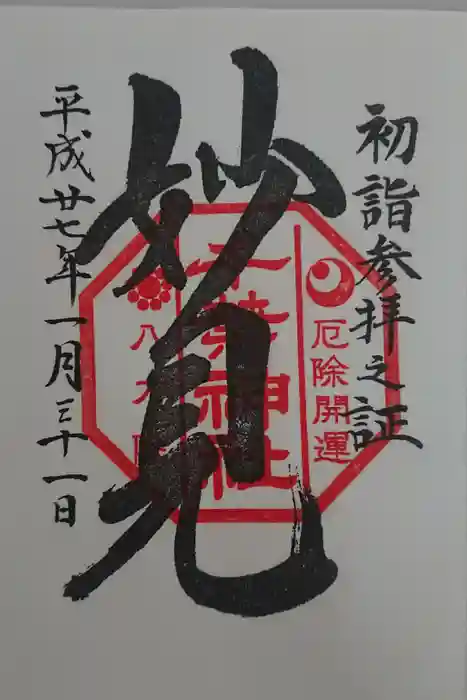 初詣参拝之証
妙見
平成廿七年一月三十一日
厄除開運
千葉神社
八方除